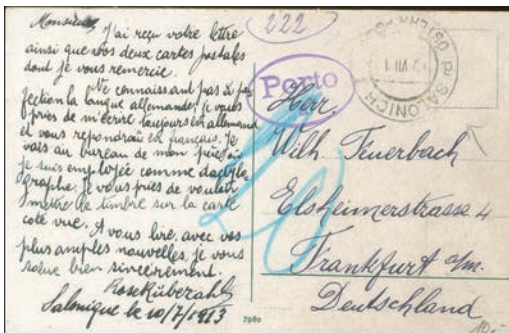 Monsieur, J'ai reçu votre lettre
ainsi que vos deux cartes postales
dont je vous remercie.
Ne connaissant pas à per
fection la langue allemande, je vous
pries de m'écrire toujours en allemand
et vous repondrais en français. Je
vais au bureau de mon père où
je suis employée comme dactylo
graphe. Je vous pries de vouloir
mettre le timbre sur la carte
coté vue. A vous lire, avec vos
plus amples nouvelles, je vous
salue bien sincèrement.
Rose Rüberzahl
Salonique le 10/7/1913
222
Porto
SALONICH
VII
20
Herr.
Wilh Feuerbach
Elsheimerstrasse 4
Frankfurt a/m.
Deutschland
7980
10.-